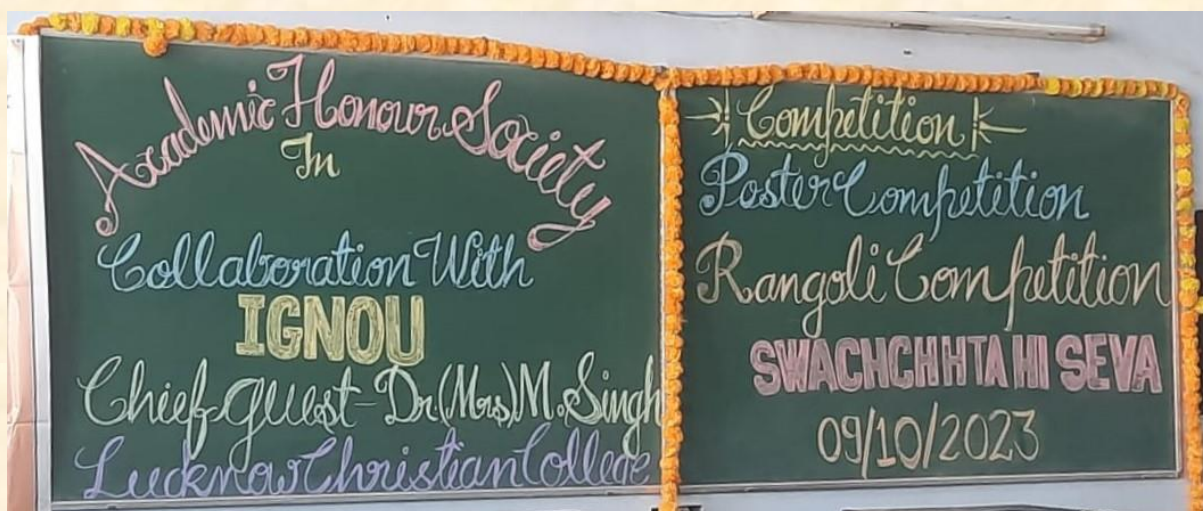 Academic Honour Society
In
Collaboration With
IGNOU
Chief guest - Dr.(Mrs) M. Singh
Lucknow Christian College
Competition
Poster Competition
Rangoli Competition
SWACHCHHTA HI SEVA
09/10/2023